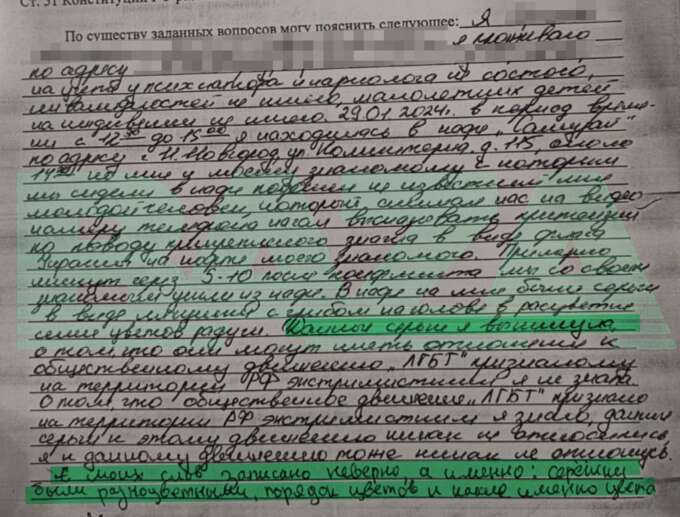 По существу заданных вопросов могу пояснить следующее: Я
я проживаю
по адресу
на учете у психиатра и нарколога не состою,
инвалидностей не имею, малолетних детей
на иждивении не имею. 29.01.2024г. в период време-
ни с 12 до 15⁰⁰ я находилась в кафе „
по адресу г. Н.Новгород ул. Коминтерна, д. 115, около
14 ко мне и моему знакомому с которым
мы сидели в кафе подошел не известный мне
молодой человек, который, снимая нас на видео
камеру телефона начал высказывать претензии
по поводу прикрепленного значка в виде флага
Украины на кофте моего знакомого. Примерно
минут через 5-10 после конфликта мы со своим
знакомым ушли из кафе. В кафе на мне были серьги
в виде лягушки с грибом на голове в расцветке
семи цветов радуги. Данные серьги я выкинула,
о том, что они могут иметь отношения к
общественному движению „ЛГБТ" признаному
на территории РФ экстримистким я не знала.
О том, что общественное движение „ЛГБТ" признано
на территории РФ экстримистким я знаю, данные
серьги к этому движению никак не относились,
я к данному движению тоже никак не отношусь.
С моих слов записано неверно, а именно: сережки
были разноцветными, порядок цветов и какие именно цвета